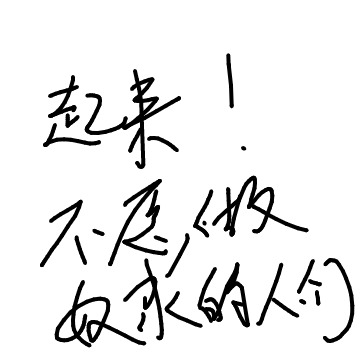 起来！
不愿做
奴隶的人们